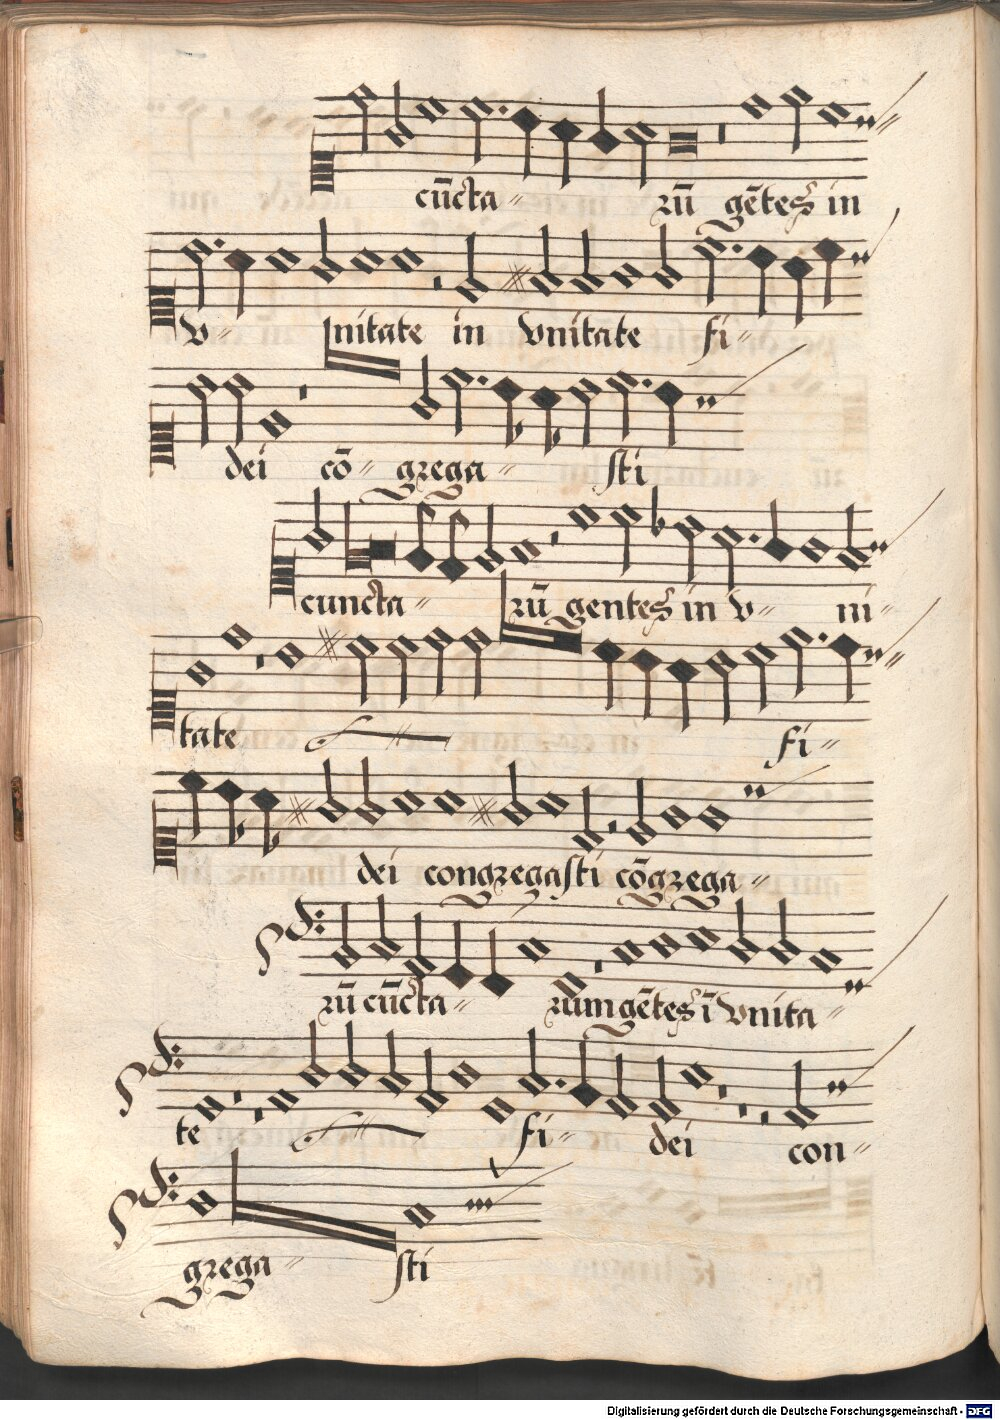 cūcta〃 zū gētes in
v〃 nitate in vnitate fi〃
dei cō〃 grega〃 sti
cuncta〃 zū gentes in v〃 ni〃
tate fi〃
dei congregasti cōgrega〃
zū cūcta〃 zum gētes ī vnita〃
te fi〃 dei con〃
grega〃 sti
Digitalisierung gefördert durch die Deutsche Forschungsgemeinschaft - DFG